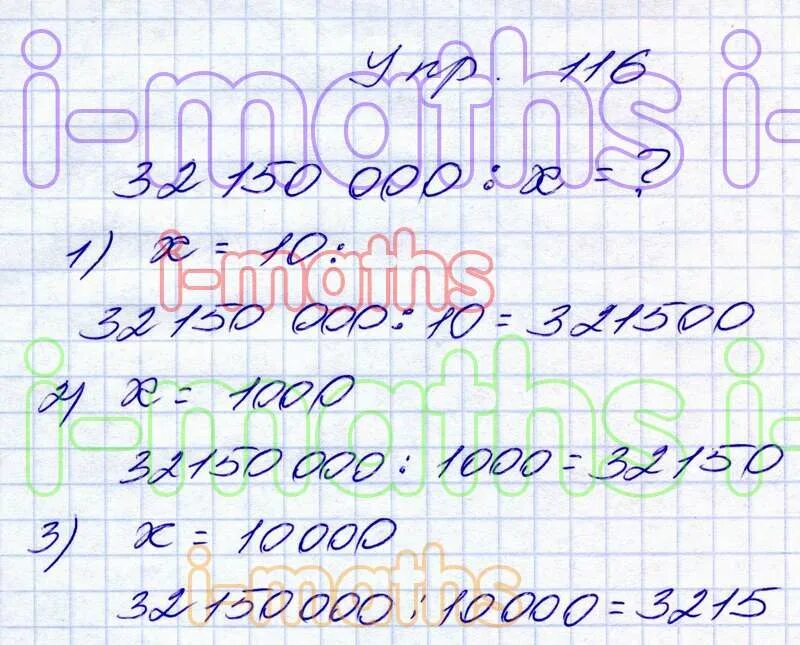 i-maths i-
Упр. 116
32 150 000 : x = ?
1) x = 10 :
i-maths
32150 000 : 10 = 321500
i-maths i-
2) x = 1000
32150 000 : 1000 = 32150
3) x = 10000
i-maths
32150000 : 10000 = 3215